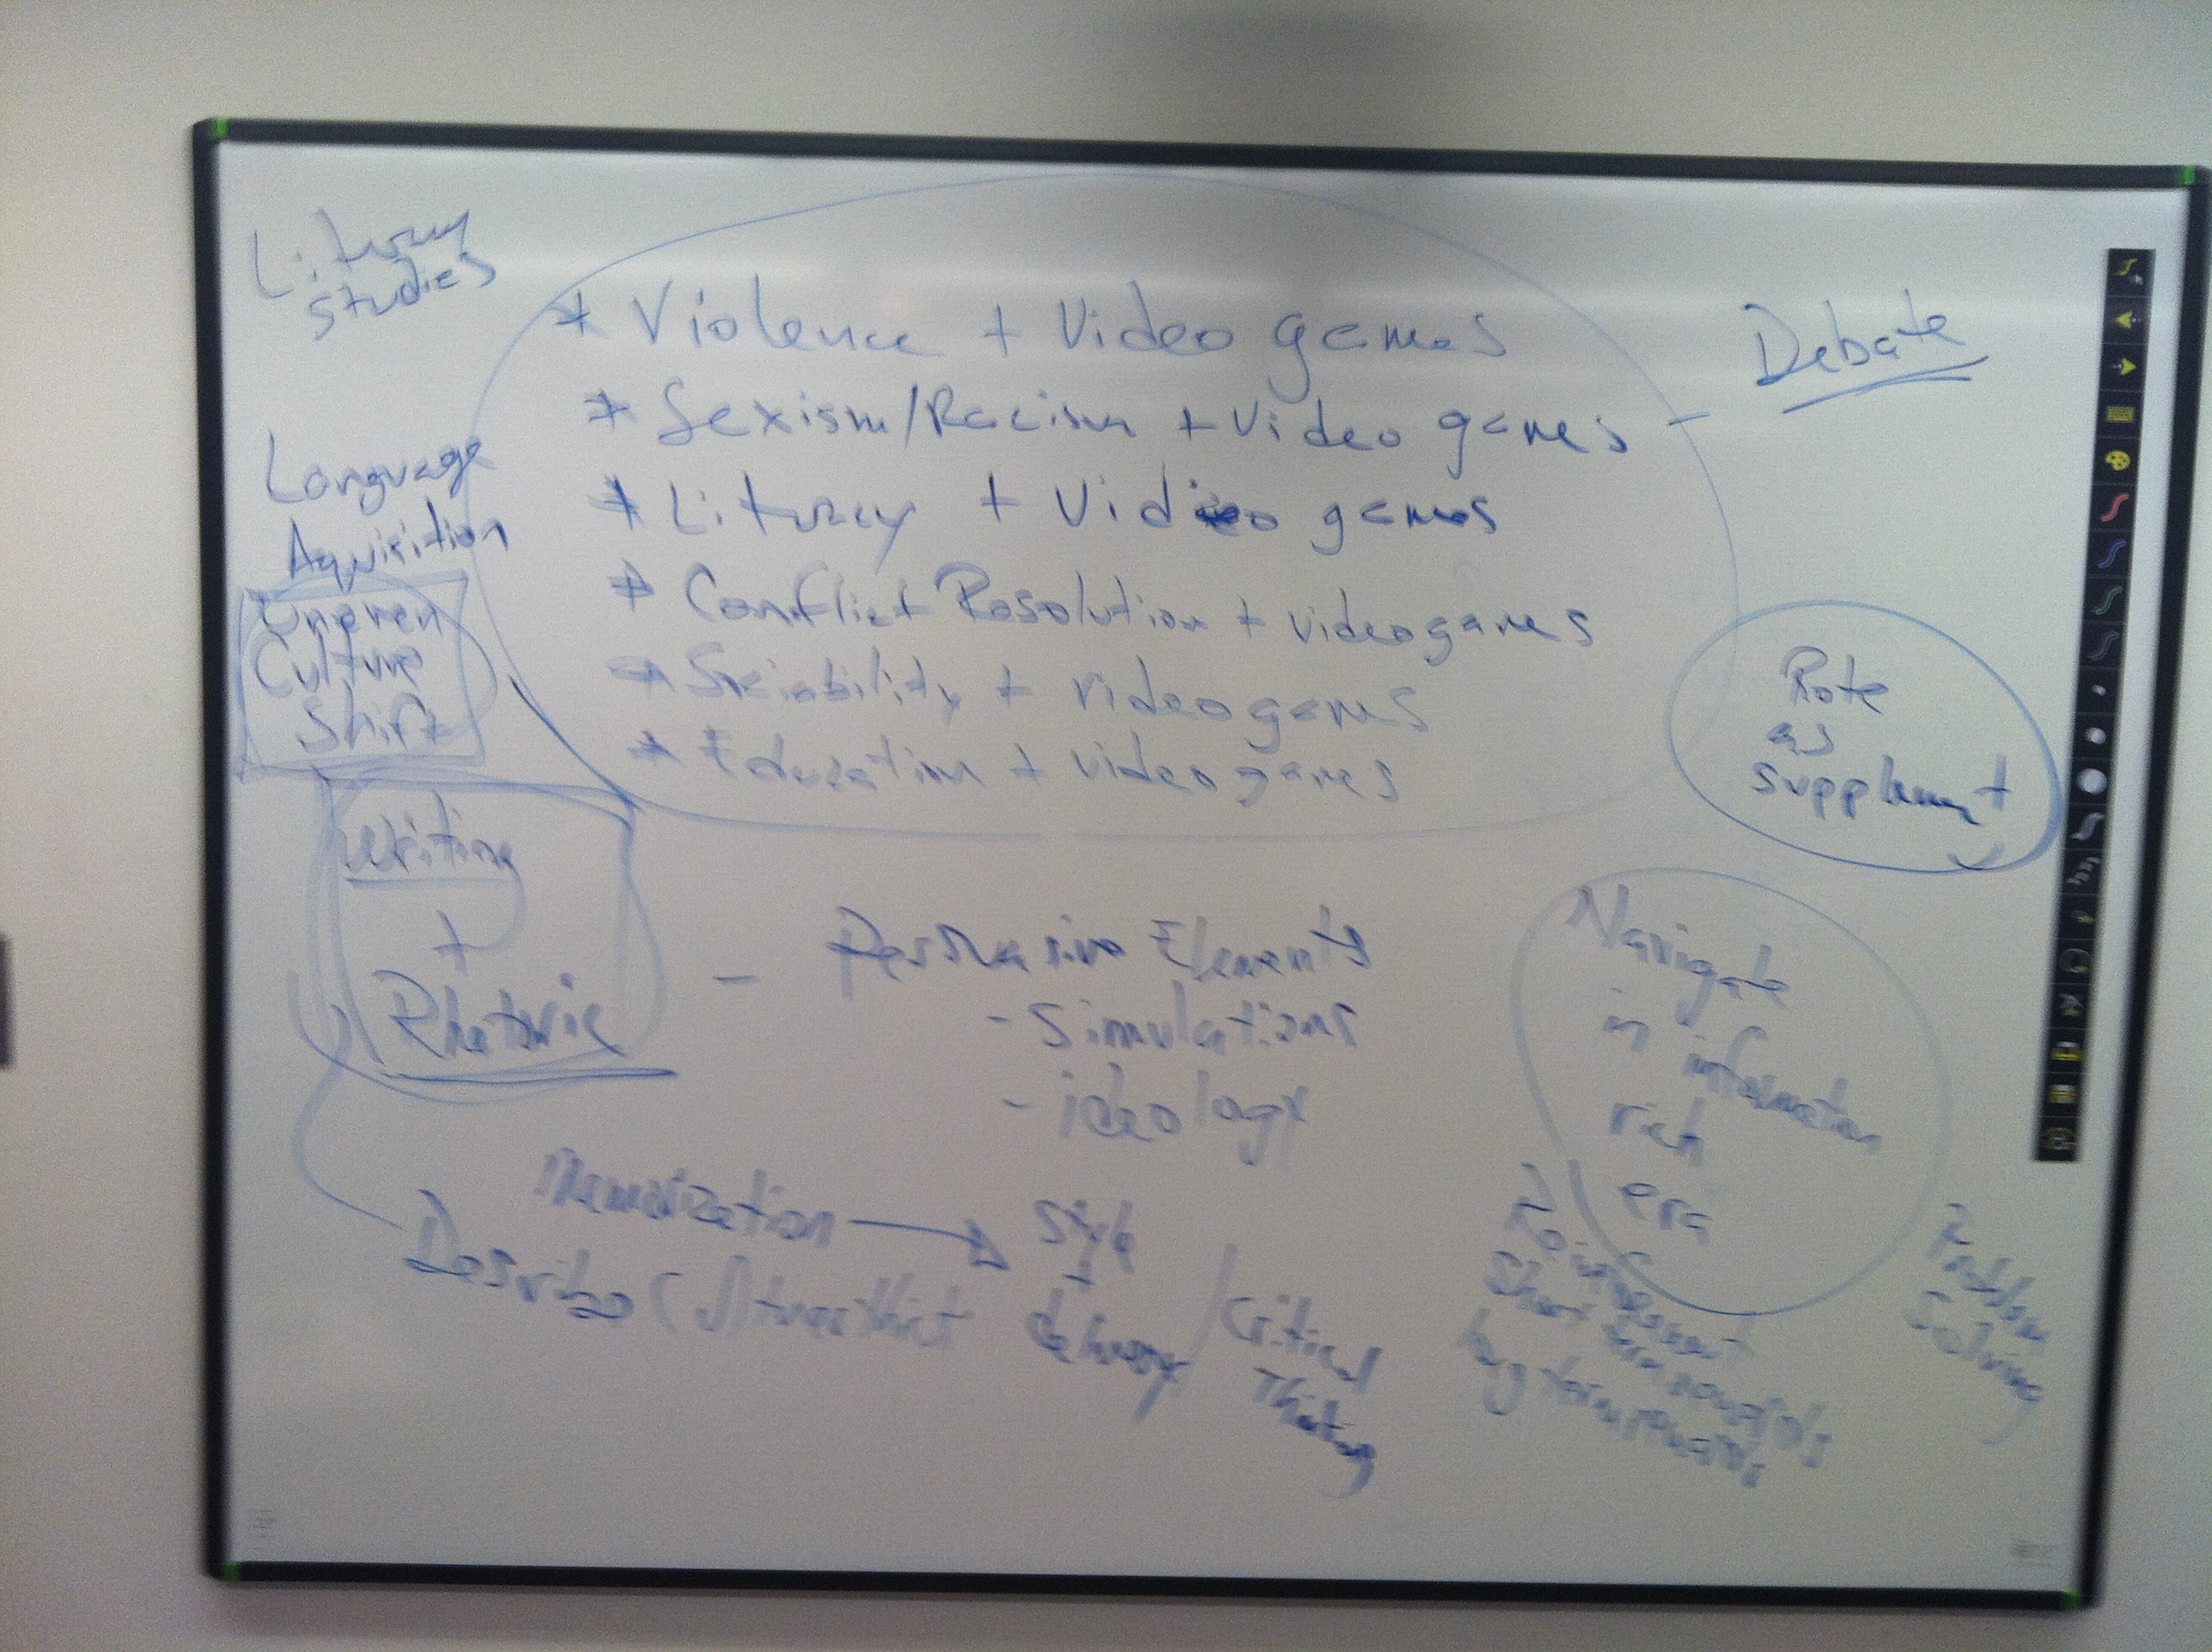 Literary
studies
* Violence + Video games
* Sexism/Racism + Video games -
* Literacy + Video games
* Conflict Resolution + videogames
* Sociability + videogames
* Education + videogames
Debate
Language
Acquisition
Uneven
Culture
Shift
Rote
as
supplement
Writing
+
Rhetoric
- Persuasive Elements
- Simulations
- ideology
Navigate
in information
rich
era
Memorization → Style
+
delivery
Describe (
/ Critical
Thinking
Reinforcement
Short term
long term
Problem
Solving